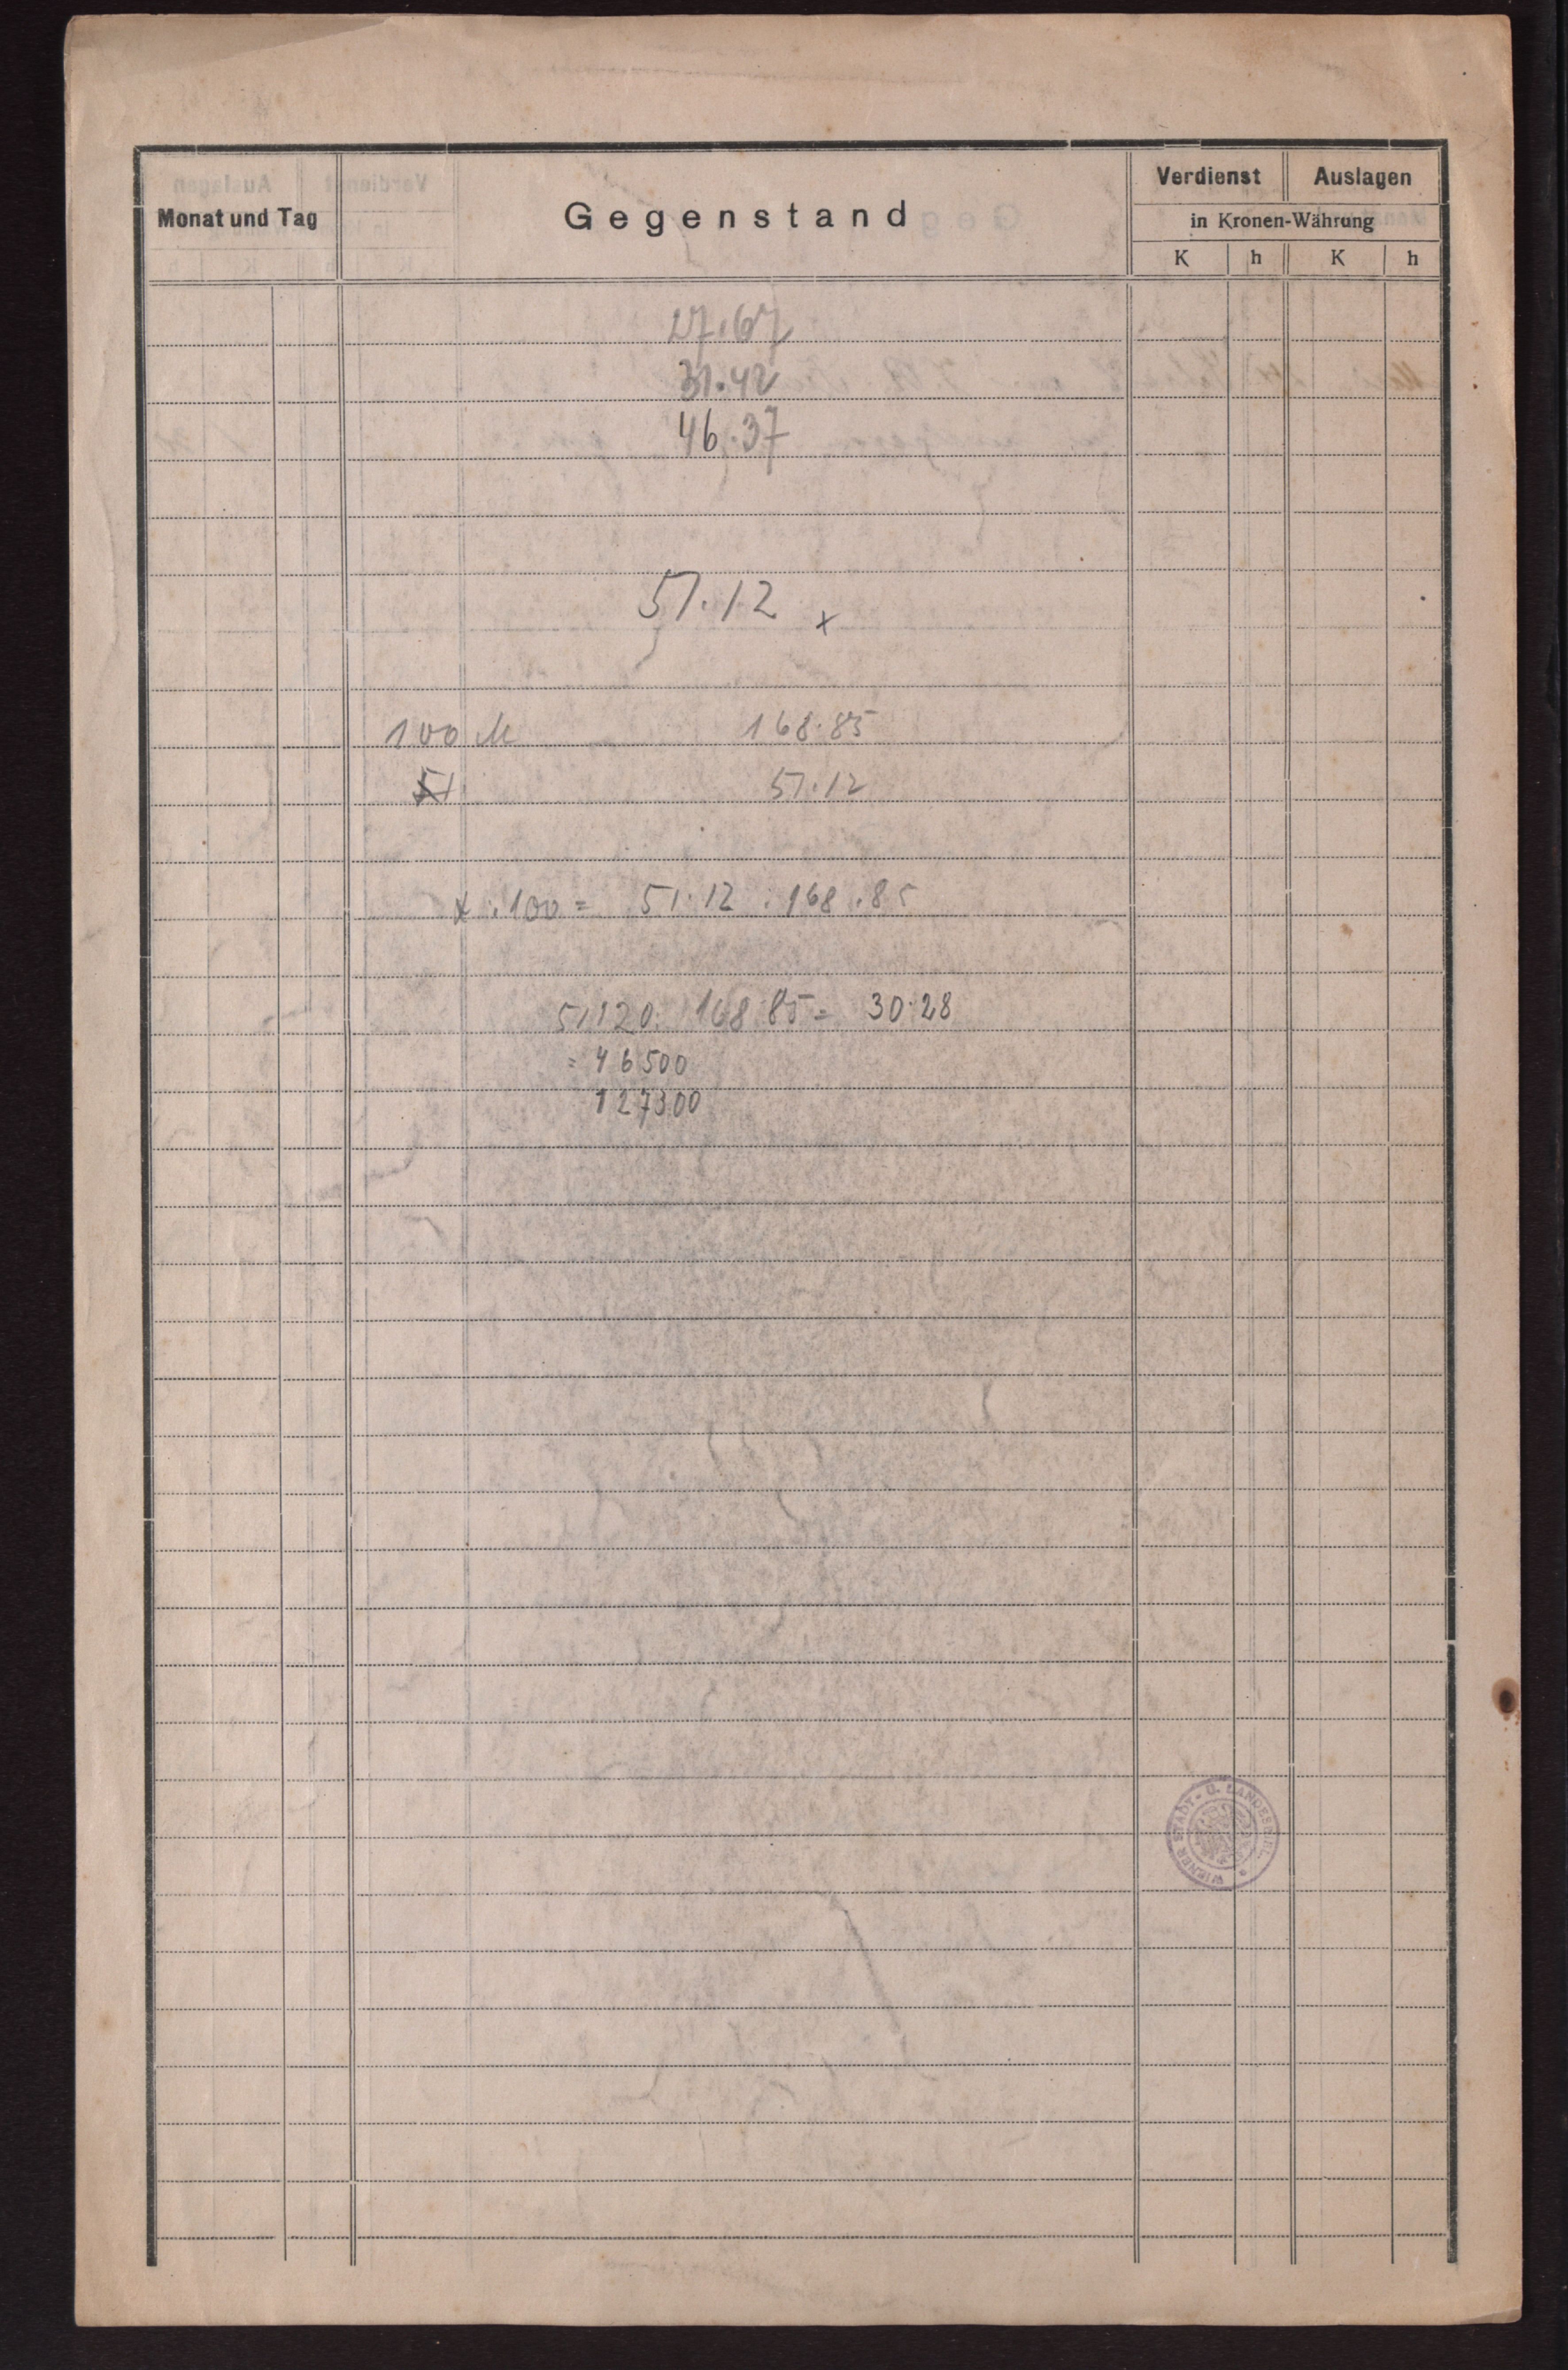 Verdienst Auslagen
Monat und Tag Gegenstand in Kronen-Währung
K h K h
27.67
31.42
46.37
51.12 x
100 M 168.85
51.12
x : 100 = 51.12 : 168.85
51120 : 168.85 = 30.28
= 46500
127300
WIENER STADT- U. LANDESBIBL.